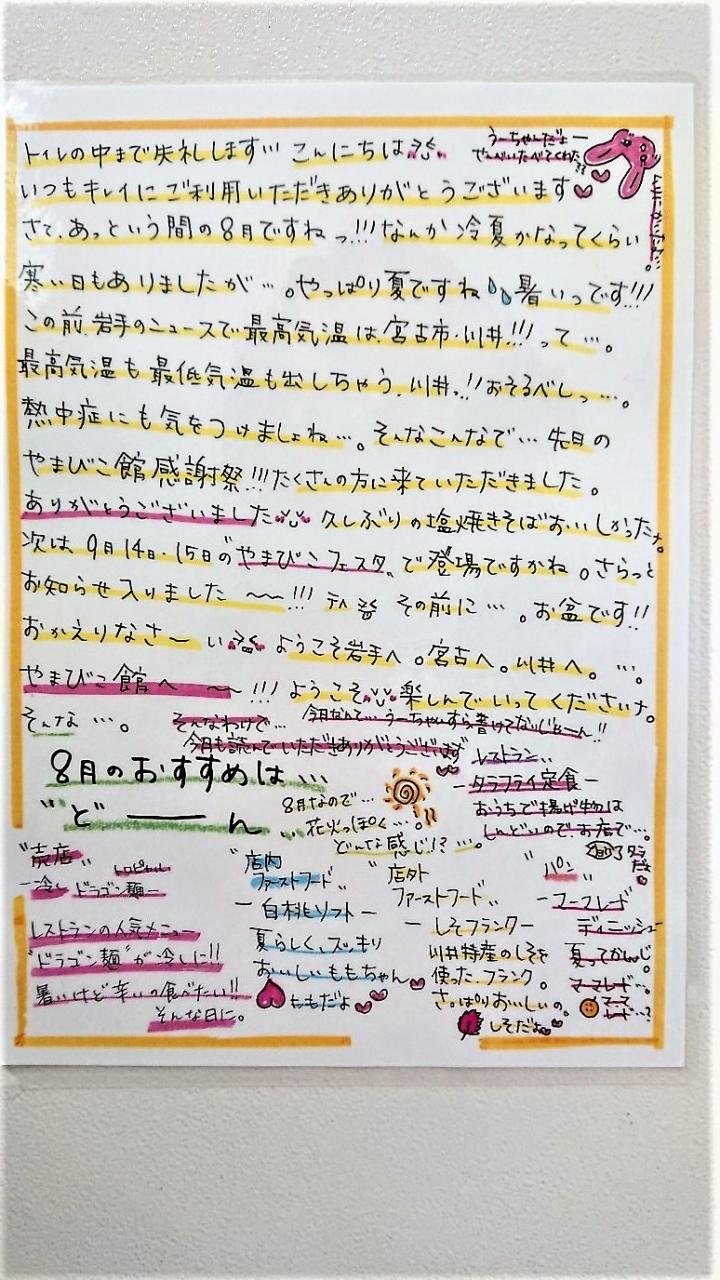 トイレの中まで失礼します… こんにちは
うーちゃんだょー
いつもキレイにご利用いただきありがとうございます
さて、あっという間の8月ですねっ!!! なんか冷夏かなってくらい
寒い日もありましたが…。やっぱり夏ですね 暑いっです!!!
この前、岩手のニュースで最高気温は、宮古市・川井!!!って…。
最高気温も最低気温も出しちゃう、川井!!おそるべしっ…。
熱中症にも気をつけましょね…。そんなこんなで…先日の
やまびこ館感謝祭!!!たくさんの方に来ていただきました。
ありがとうございました 久しぶりの塩焼きそばおいしかったナ。
次は、9月14日・15日の"やまびこフェスタ"で登場ですかね。さらっと
お知らせ入りました〜〜!!! その前に…。お盆です!!
おかえりなさ〜い ようこそ岩手へ。宮古へ。川井へ。…。
やまびこ館へ〜〜!!! ようこそ 楽しんでいってくださいナ。
そんな…。
そんなわけで… 今月なんて…うーちゃんすら書けてないじゃーん!!
今月も読んでいただきありがとうございます
8月のおすすめは…
"ど――ん"
8月なので…
花火っぽく…。
どんな感じ!?…。
"レストラン"
―タラフライ定食―
おうちで揚げ物は
しんどいので、お店で…。
タラだょ
"売店"
―冷し トロピカルドラゴン麺―
レストランの人気メニュー
"ドラゴン麺"が冷しに!!
暑いけど辛いの食べたい!!
そんな日に。
"店内
ファーストフード"
―白桃ソフト―
夏らしく、スッキリ
おいしいももちゃん
ももだよ
"店外
ファーストフード"
―しそフランクー
川井特産のしそを
使った、フランク。
さっぱりおいしいの。
しそだょ
"パン"
―マーマレード
デイニッシュ―
夏ってかんじ。
マーマレード…。
マーマレード…?